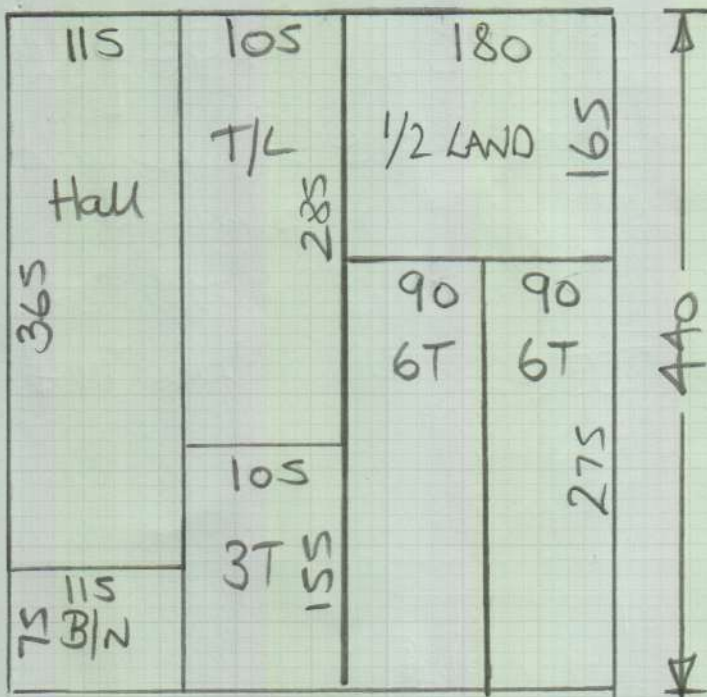 115
Hall
365
115
75 B/N
105
T/L
285
105
3T 155
180
1/2 LAND 165
90 90
6T 6T
275
440